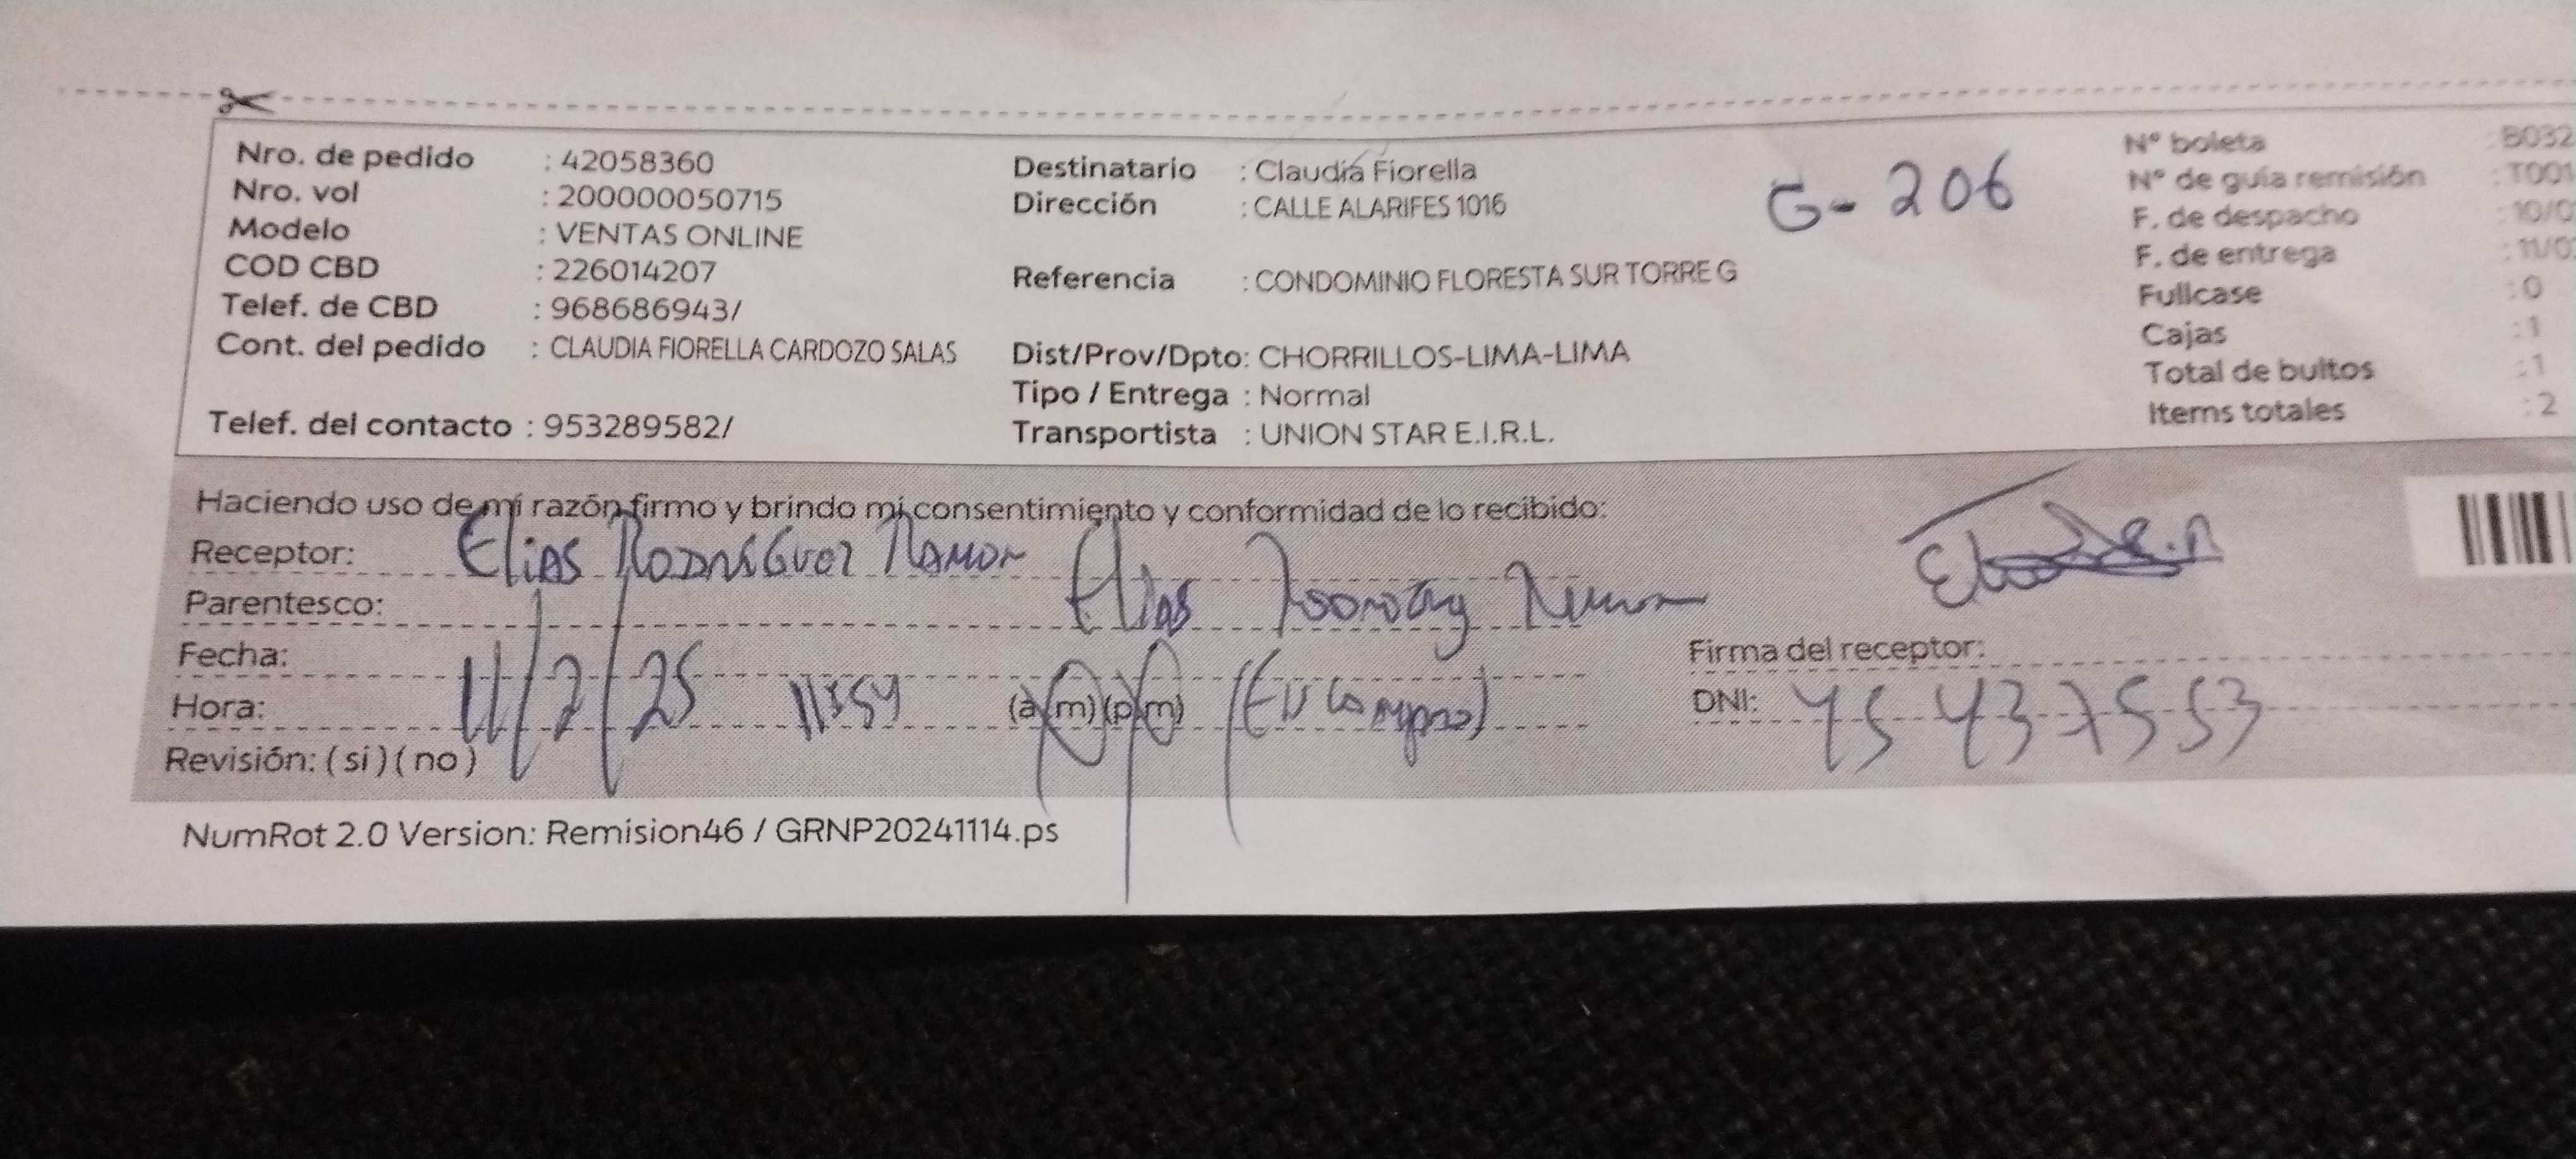 Nro. de pedido : 42058360
Nro. vol : 200000050715
Modelo : VENTAS ONLINE
COD CBD : 226014207
Telef. de CBD : 968686943/
Cont. del pedido : CLAUDIA FIORELLA CARDOZO SALAS
Telef. del contacto : 953289582/
Destinatario : Claudia Fiorella
Dirección : CALLE ALARIFES 1016
Referencia : CONDOMINIO FLORESTA SUR TORRE G
Dist/Prov/Dpto: CHORRILLOS-LIMA-LIMA
Tipo / Entrega : Normal
Transportista : UNION STAR E.I.R.L.
G-206
N° boleta : B032
N° de guía remisión : T001
F. de despacho : 10/0
F. de entrega : 11/0
Fullcase : 0
Cajas : 1
Total de bultos : 1
Items totales : 2
Haciendo uso de mi razón firmo y brindo mi consentimiento y conformidad de lo recibido:
Receptor: Elias Rodriguez Ramon
Parentesco: Elias
Fecha: 11/2/25
Hora: 11:54 (a m) (p m)
Revisión: ( si ) ( no )
Firma del receptor:
DNI: 45437553
NumRot 2.0 Version: Remision46 / GRNP20241114.ps